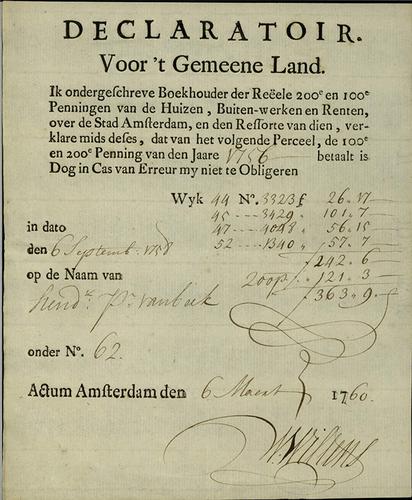 DECLARATOIR.
Voor 't Gemeene Land.
Ik ondergeschreve Boekhouder der Reëele 200e en 100e
Penningen van de Huizen, Buiten-werken en Renten,
over de Stad Amsterdam, en den Ressorte van dien, ver-
klare mids deses, dat van het volgende Perceel, de 100e
en 200e Penning van den Jaare 1756 betaalt is
Dog in Cas van Erreur my niet te Obligeren
Wyk 44 No. 3323 f 26.17
45 --- 3429 " 101.7
in dato 47 --- 4098 " 56.15
den 6 Septemb. 1758 52 --- 1340 " 57.7
f 242.6
op de Naam van 200p f 121.3
Hendk. Ps. van beek f 363.9.
onder No. 62.
Actum Amsterdam den 6 Maert 1760.
Willens